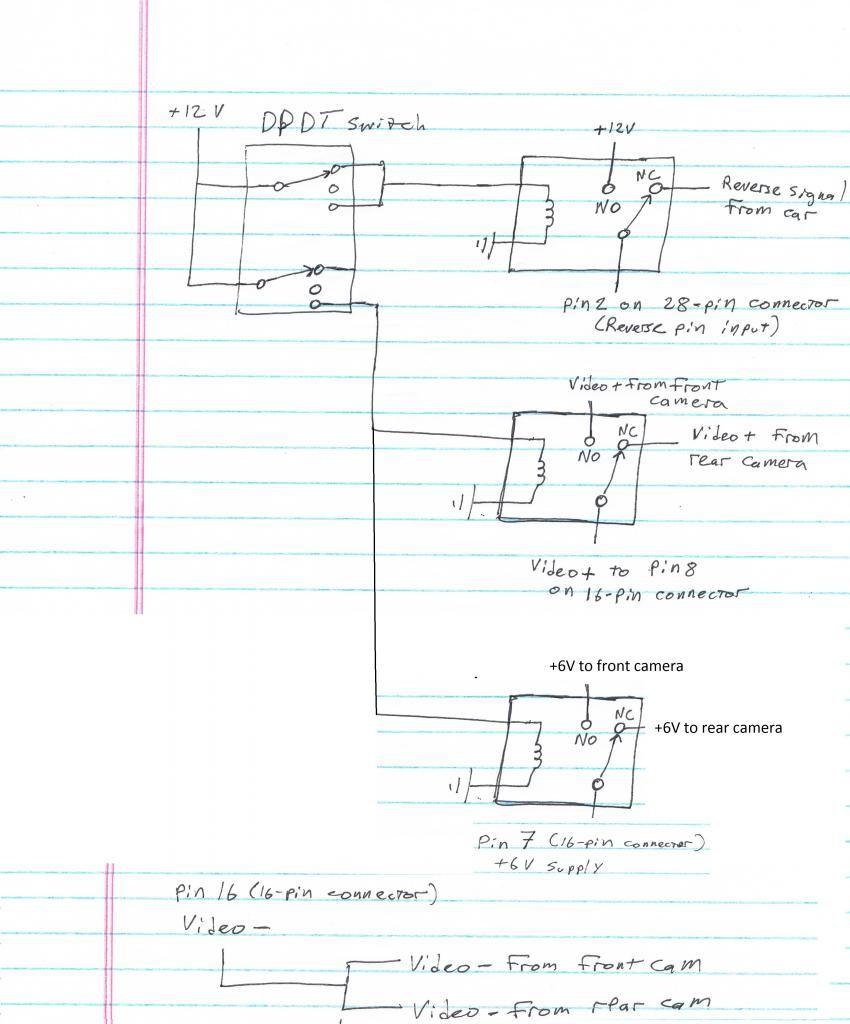 +12 V
DPDT switch
+12V
NC
NO
Reverse signal
from car
Pin 2 on 28-pin connector
(Reverse pin input)
Video+ from front
camera
NC
NO
Video+ from
rear camera
Video+ to pin 8
on 16-pin connector
+6V to front camera
NC
NO
+6V to rear camera
Pin 7 (16-pin connector)
+6V supply
Pin 16 (16-pin connector)
Video -
Video - from front cam
Video - from rear cam